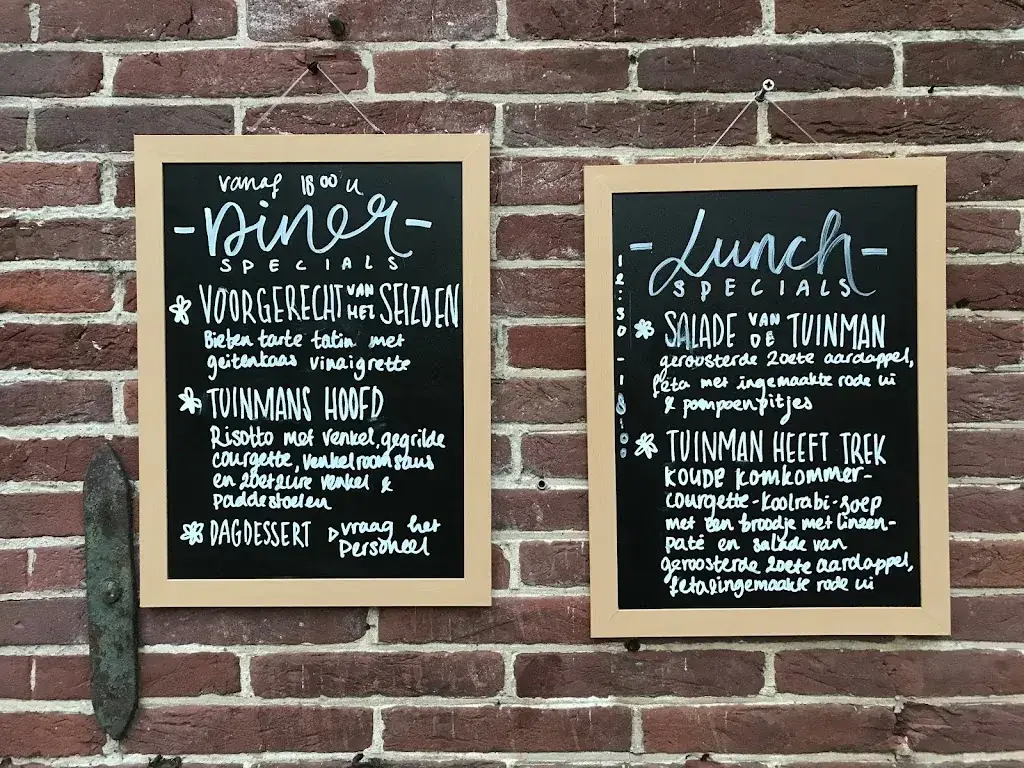 vanaf 18 00 u
-Diner-
SPECIALS
VOORGERECHT VAN HET SEIZOEN
Bieten tarte tatin met
geitenkaas vinaigrette
TUINMANS HOOFD
Risotto met venkel, gegrilde
courgette, venkelroomsaus
en zoetzure venkel &
paddestoelen
DAGDESSERT ▷ vraag het
personeel
-Lunch-
SPECIALS
12:30 - 18:00
SALADE VAN DE TUINMAN
geroosterde zoete aardappel,
feta met ingemaakte rode ui
& pompoenpitjes
TUINMAN HEEFT TREK
Koude komkommer-
courgette-koolrabi-soep
met een broodje met linzen-
paté en salade van
geroosterde zoete aardappel,
feta & ingemaakte rode ui